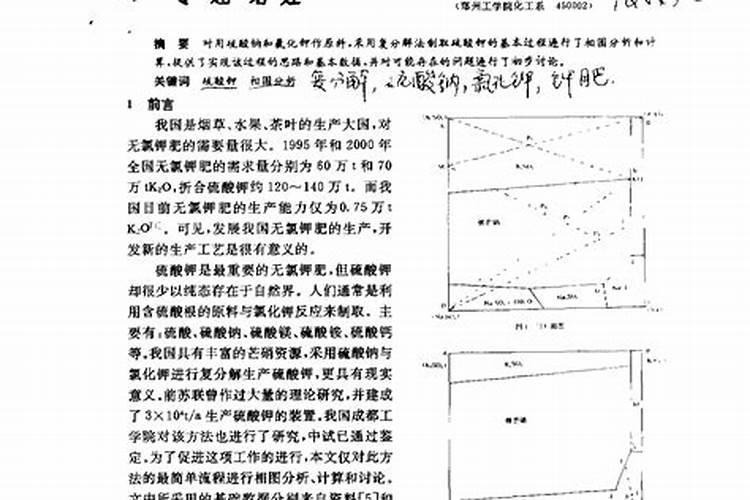 (郑州工学院化工系 450002)
摘 要 对用硫酸钠和氯化钾作原料,采用复分解法制取硫酸钾的基本过程进行了相图分析和计
算,提供了实现该过程的思路和基本数据,并对可能存在的问题进行了初步讨论。
关键词 硫酸钾 相图分析 复分解,硫酸钠,氯化钾,钾肥.
1 前言
我国是烟草、水果、茶叶的生产大国,对
无氯钾肥的需要量很大。1995年和2000年
全国无氯钾肥的需求量分别为60万t和70
万tK₂O,折合硫酸钾约120～140万t。而我
国目前无氯钾肥的生产能力仅为0.75万t
K₂O。可见,发展我国无氯钾肥的生产,开
发新的生产工艺是很有意义的。
硫酸钾是最重要的无氯钾肥,但硫酸钾
却很少以纯态存在于自然界。人们通常是利
用含硫酸根的原料与氯化钾反应来制取。主
要有:硫酸、硫酸钠、硫酸镁、硫酸铵、硫酸钙
等。我国具有丰富的芒硝资源,采用硫酸钠与
氯化钾进行复分解生产硫酸钾,更具有现实
意义。前苏联曾作过大量的理论研究,并建成
了3×10⁴t/a生产硫酸钾的装置。我国成都工
学院对该方法也进行了研究,中试已通过鉴
定。为了促进这项工作的进行,本文仅对此方
法的最简单流程进行相图分析、计算和讨论。
文中所采用的基础数据分别来自资料[5]和
K₂SO₄
钾芒硝
Na₂SO₄
K₂SO₄
钾芒硝